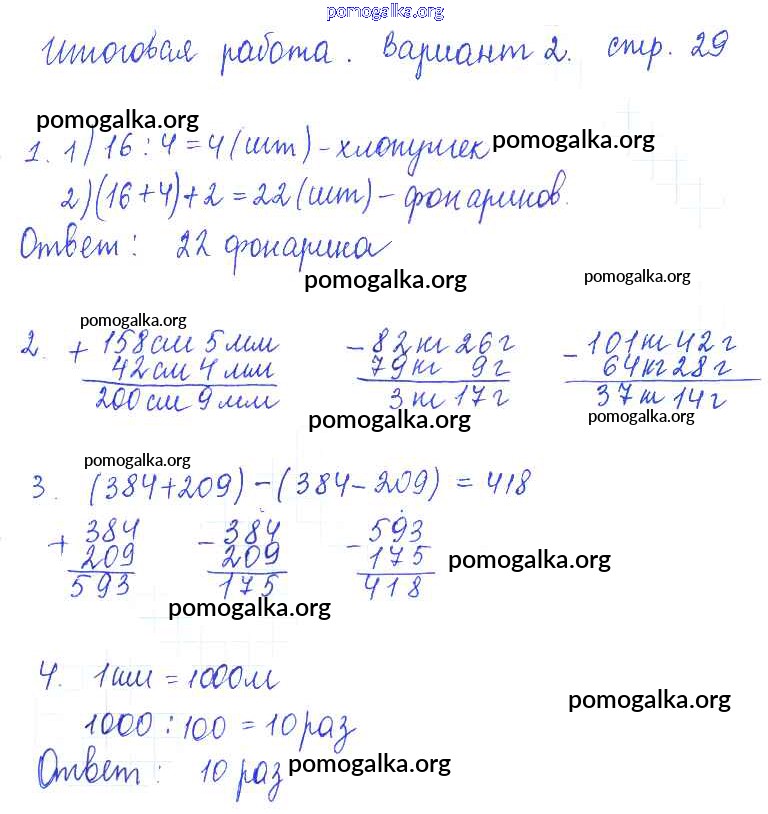 pomogalka.org
Итоговая работа. Вариант 2. стр. 29
pomogalka.org
1. 1) 16 : 4 = 4 (шт) - хлопушек pomogalka.org
2) (16 + 4) + 2 = 22 (шт) - фонариков.
Ответ: 22 фонарика
pomogalka.org pomogalka.org
pomogalka.org
2. + 158 см 5 мм - 82 кг 26 г - 101 кг 42 г
42 см 4 мм 79 кг 9 г 64 кг 28 г
200 см 9 мм 3 кг 17 г 37 кг 14 г
pomogalka.org pomogalka.org
pomogalka.org
3. (384 + 209) - (384 - 209) = 418
+ 384 - 384 - 593
209 209 175 pomogalka.org
593 175 418
pomogalka.org
4. 1 км = 1000 м
pomogalka.org
1000 : 100 = 10 раз
Ответ: 10 раз pomogalka.org